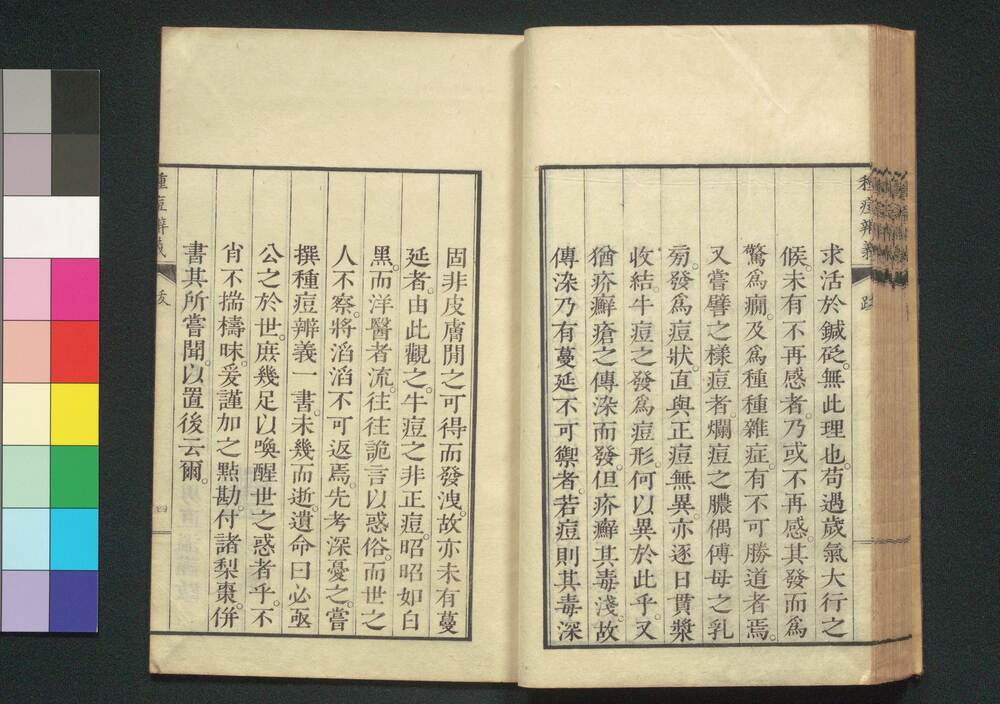 種痘辨義
跋
求活於鍼砭。無此理也。苟過歲氣大行之
候。未有不再感者。乃或不再感。其發而爲
驚爲癇。及爲種種雜症。有不可勝道者焉。
又嘗譬之樣痘者。爛痘之膿偶傅母之乳
房。發爲痘狀。直與正痘無異。亦逐日貫漿
收結。牛痘之發爲痘形。何以異於此乎。又
猶疥癬瘡之傳染而發。但疥癬其毒淺。故
傳染乃有蔓延不可禦者。若痘則其毒深
固非皮膚閒之可得而發洩。故亦未有蔓
延者。由此觀之。牛痘之非正痘。昭昭如白
黑。而洋醫者流。往往詭言以惑俗。而世之
人不察。將滔滔不可返焉。先考深憂之。嘗
撰種痘辨義一書。未幾而逝。遺命曰必亟
公之於世。庶幾足以喚醒世之惑者乎。不
肖不揣檮昧。爰謹加之㸃勘。付諸梨棗。併
書其所嘗聞。以置後云爾。
種痘辨義
跋
四